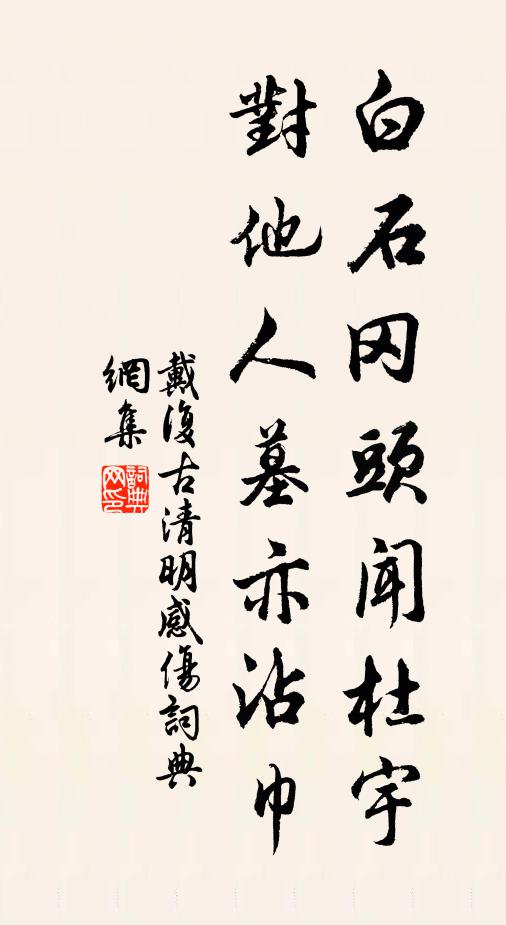 白石冈頭聞杜宇
對他人墓亦沾巾
戴復古清明感傷詞典
網集
詞典
网印